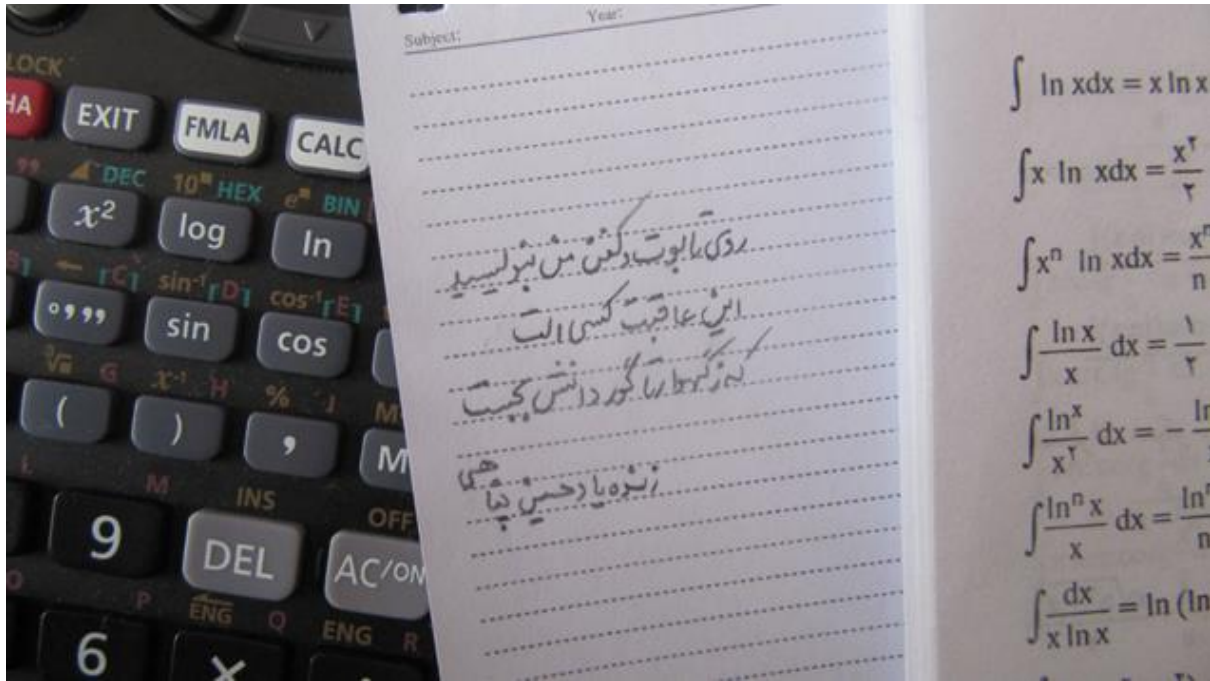 LOCK
HA EXIT FMLA CALC
DEC 10 HEX e BIN
x² log ln
sin⁻¹ D cos⁻¹ E
sin cos
G x⁻¹ H % M
( ) , M
L M INS OFF
9 DEL AC/ON
P ENG Q ENG R
6 ×
Year:
Subject:
روی تابوت و کفن من بنویسید
این عاقبت کسی است
که زگهواره تا گور دانش بجست
زنده یاد حسین پناهی
∫ ln xdx = x ln x
∫x ln xdx = x²/۲
∫xⁿ ln xdx = xⁿ/n
∫ ln x/x dx = ۱/۲
∫ lnˣ/x² dx = − ln
∫ lnⁿ x/x dx = lnⁿ/n
∫ dx/x ln x = ln (ln